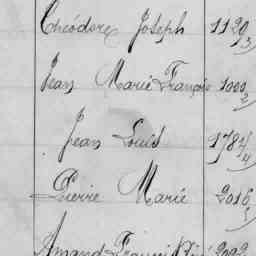 Théodore Joseph 1129/3
Jean Marie François 1000/2
Jean Louis 1784/4
Pierre Marie 2016
Amand François 2092